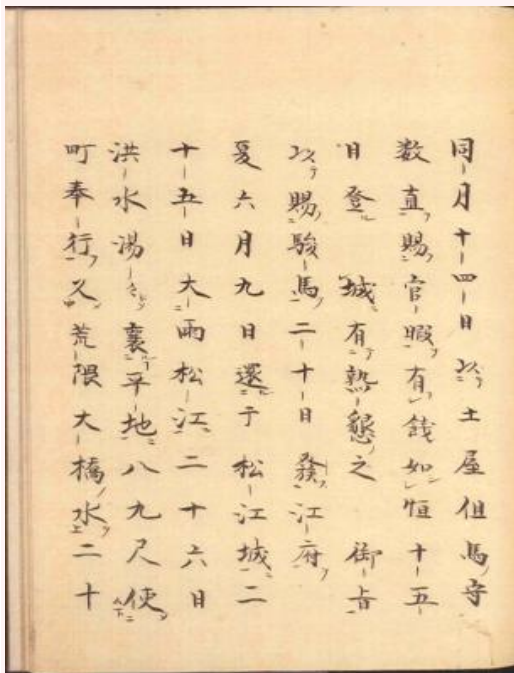 同月十四日以土屋但馬守
数直賜官暇有餞如恒十五
日登 城有熟懇之 御旨
以賜駿馬二十日 發江府
夏六月九日還于松江城二
十五日大雨松江二十六日
洪水湯々襄平地八九尺使
町奉行久荒隈大橋水二十